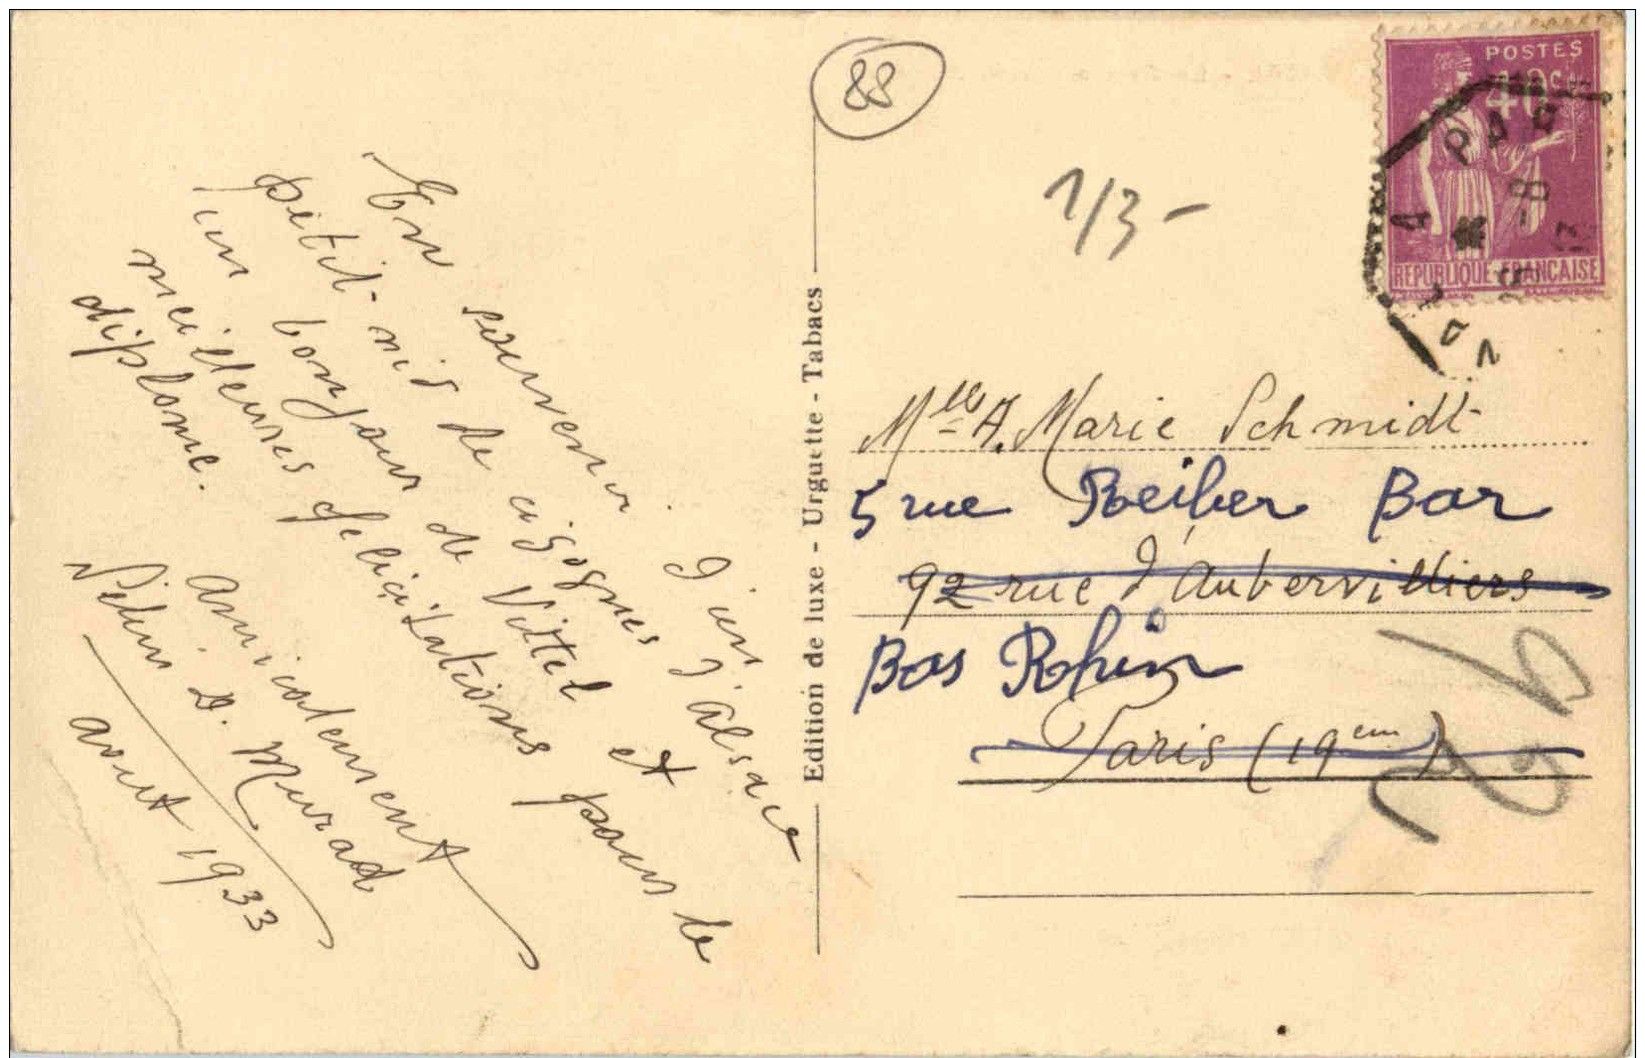 En souvenir d'un
petit nid de cigognes d'Alsace
un bonjour de Vittel et
meilleures felicitations pour le
diplome.
Amicalement
D. Murad
aout 1933
88
Edition de luxe - Urguette - Tabacs
1/3 -
POSTES
40c
REPUBLIQUE FRANCAISE
Mlle A. Marie Schmidt
5 rue Reiber Bar
92 rue d'Aubervilliers
Bas Rhin
Paris (19em)